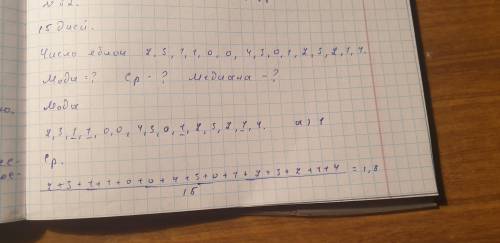 N 62.
15 дней.
Число яблок 2, 3, 1, 1, 0, 0, 4, 3, 0, 1, 2, 3, 2, 1, 4.
Мода = ? Ср - ? Медиана - ?
Мода
2, 3, 1, 1, 0, 0, 4, 3, 0, 1, 2, 3, 2, 1, 4. а) 1
Ср.
2+3+1+1+0+0+4+3+0+1+2+3+2+1+4 = 1,8
15